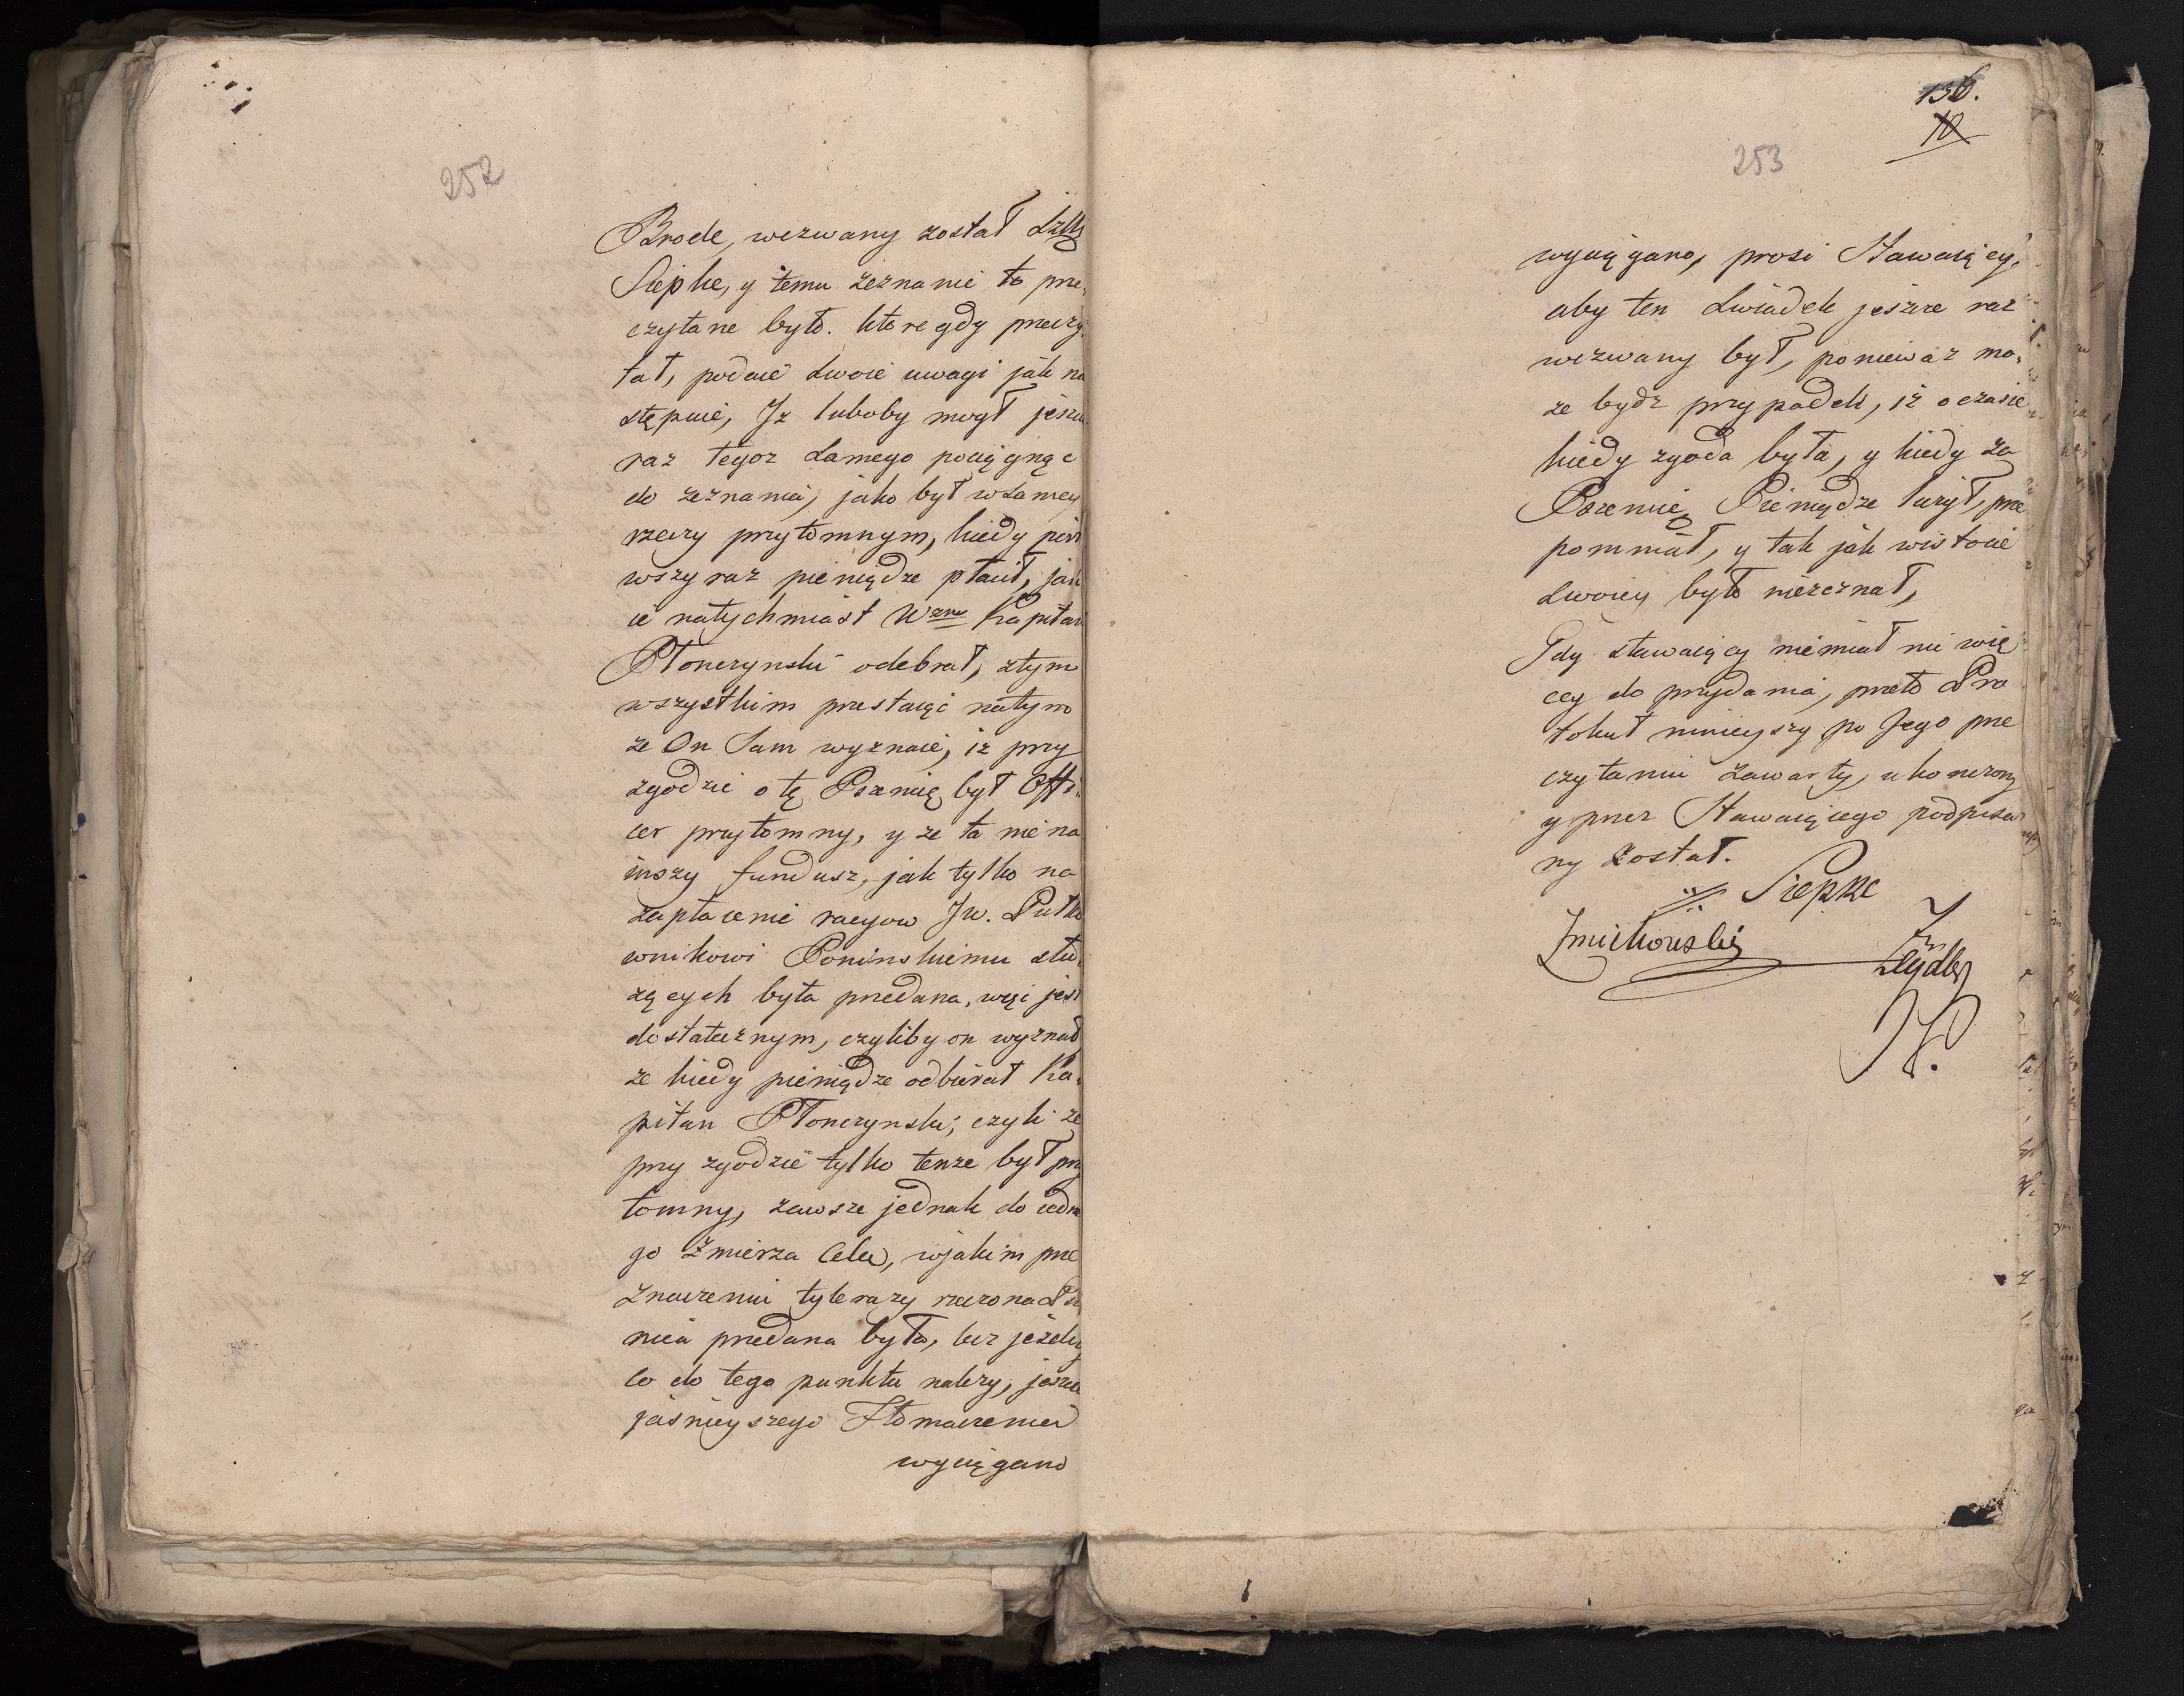 252
Brode, wezwany został
Siepke, y temu zeznanie to prze,
czytane było. które gdy przeczy,
tał, podaie swoie uwagi jak na
stępuie, Iż luboby mogł jeszcze
raz tegoz samego pociągnąc
do zeznania, jako był wsamey
rzeczy przytomnym, kiedy pier
wszy raz pieniądze płacił, jak
ie natychmiast Wzny Kapitan
Płonczynski odebrał, ztym
wszystkim przestaiąc natym
ze On Sam wyznaie, iz przy
zgodzie o tę Pszenię był Offi,
cer przytomny, y ze ta nie na
inszy fundusz, jak tylko na
zapłacenie racyow Jw. Pułko
wnikowi Poninskiemu słu,
zących była przedana, więc jest
dostatecznym, czyliby on wyznał
ze kiedy pieniądze odbierał Ka,
pitan Płonczynski, czyli ze
przy zgodzie tylko tenze był przy
tomny, zawsze jednak do iedne
go zmierza Celu, wjakim prze
znaczeniu tyle razy rzeczona Psze
nica przedana była, lecz jezeli
co do tego punktu nalezy, jeszcze
jasnieyszego Tłomaczenia
wyciągano
136.
10
253
wyciągano, prosi Stawaiący,
aby ten Swiadek jeszcze raz
wezwany był, poniewaz mo,
ze bydz przypadek, iż o czasie
kiedy zgoda była, y kiedy za
Pszenię Pieniądze liczył, prze
pomniał, y tak jak wistocie
swoiey było niezeznał,
Gdy stawaiący niemiał nic wię
cey do przydania, przeto Pro
tokuł ninieyszy po Jego prze
czytaniu zawarty, ukonczony
y przez Stawaiącego podpisa
ny został.
Siepke
Zmichowski
Zeydler